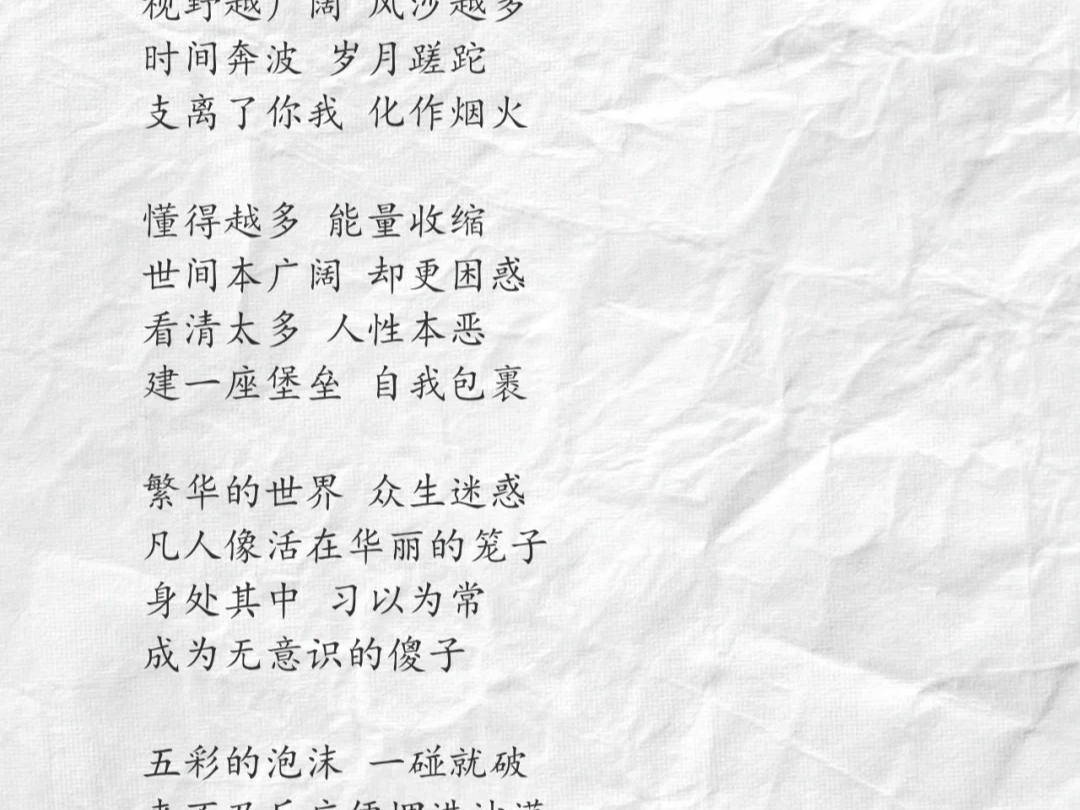 视野越广阔 风沙越多
时间奔波 岁月蹉跎
支离了你我 化作烟火
懂得越多 能量收缩
世间本广阔 却更困惑
看清太多 人性本恶
建一座堡垒 自我包裹
繁华的世界 众生迷惑
凡人像活在华丽的笼子
身处其中 习以为常
成为无意识的傻子
五彩的泡沫 一碰就破